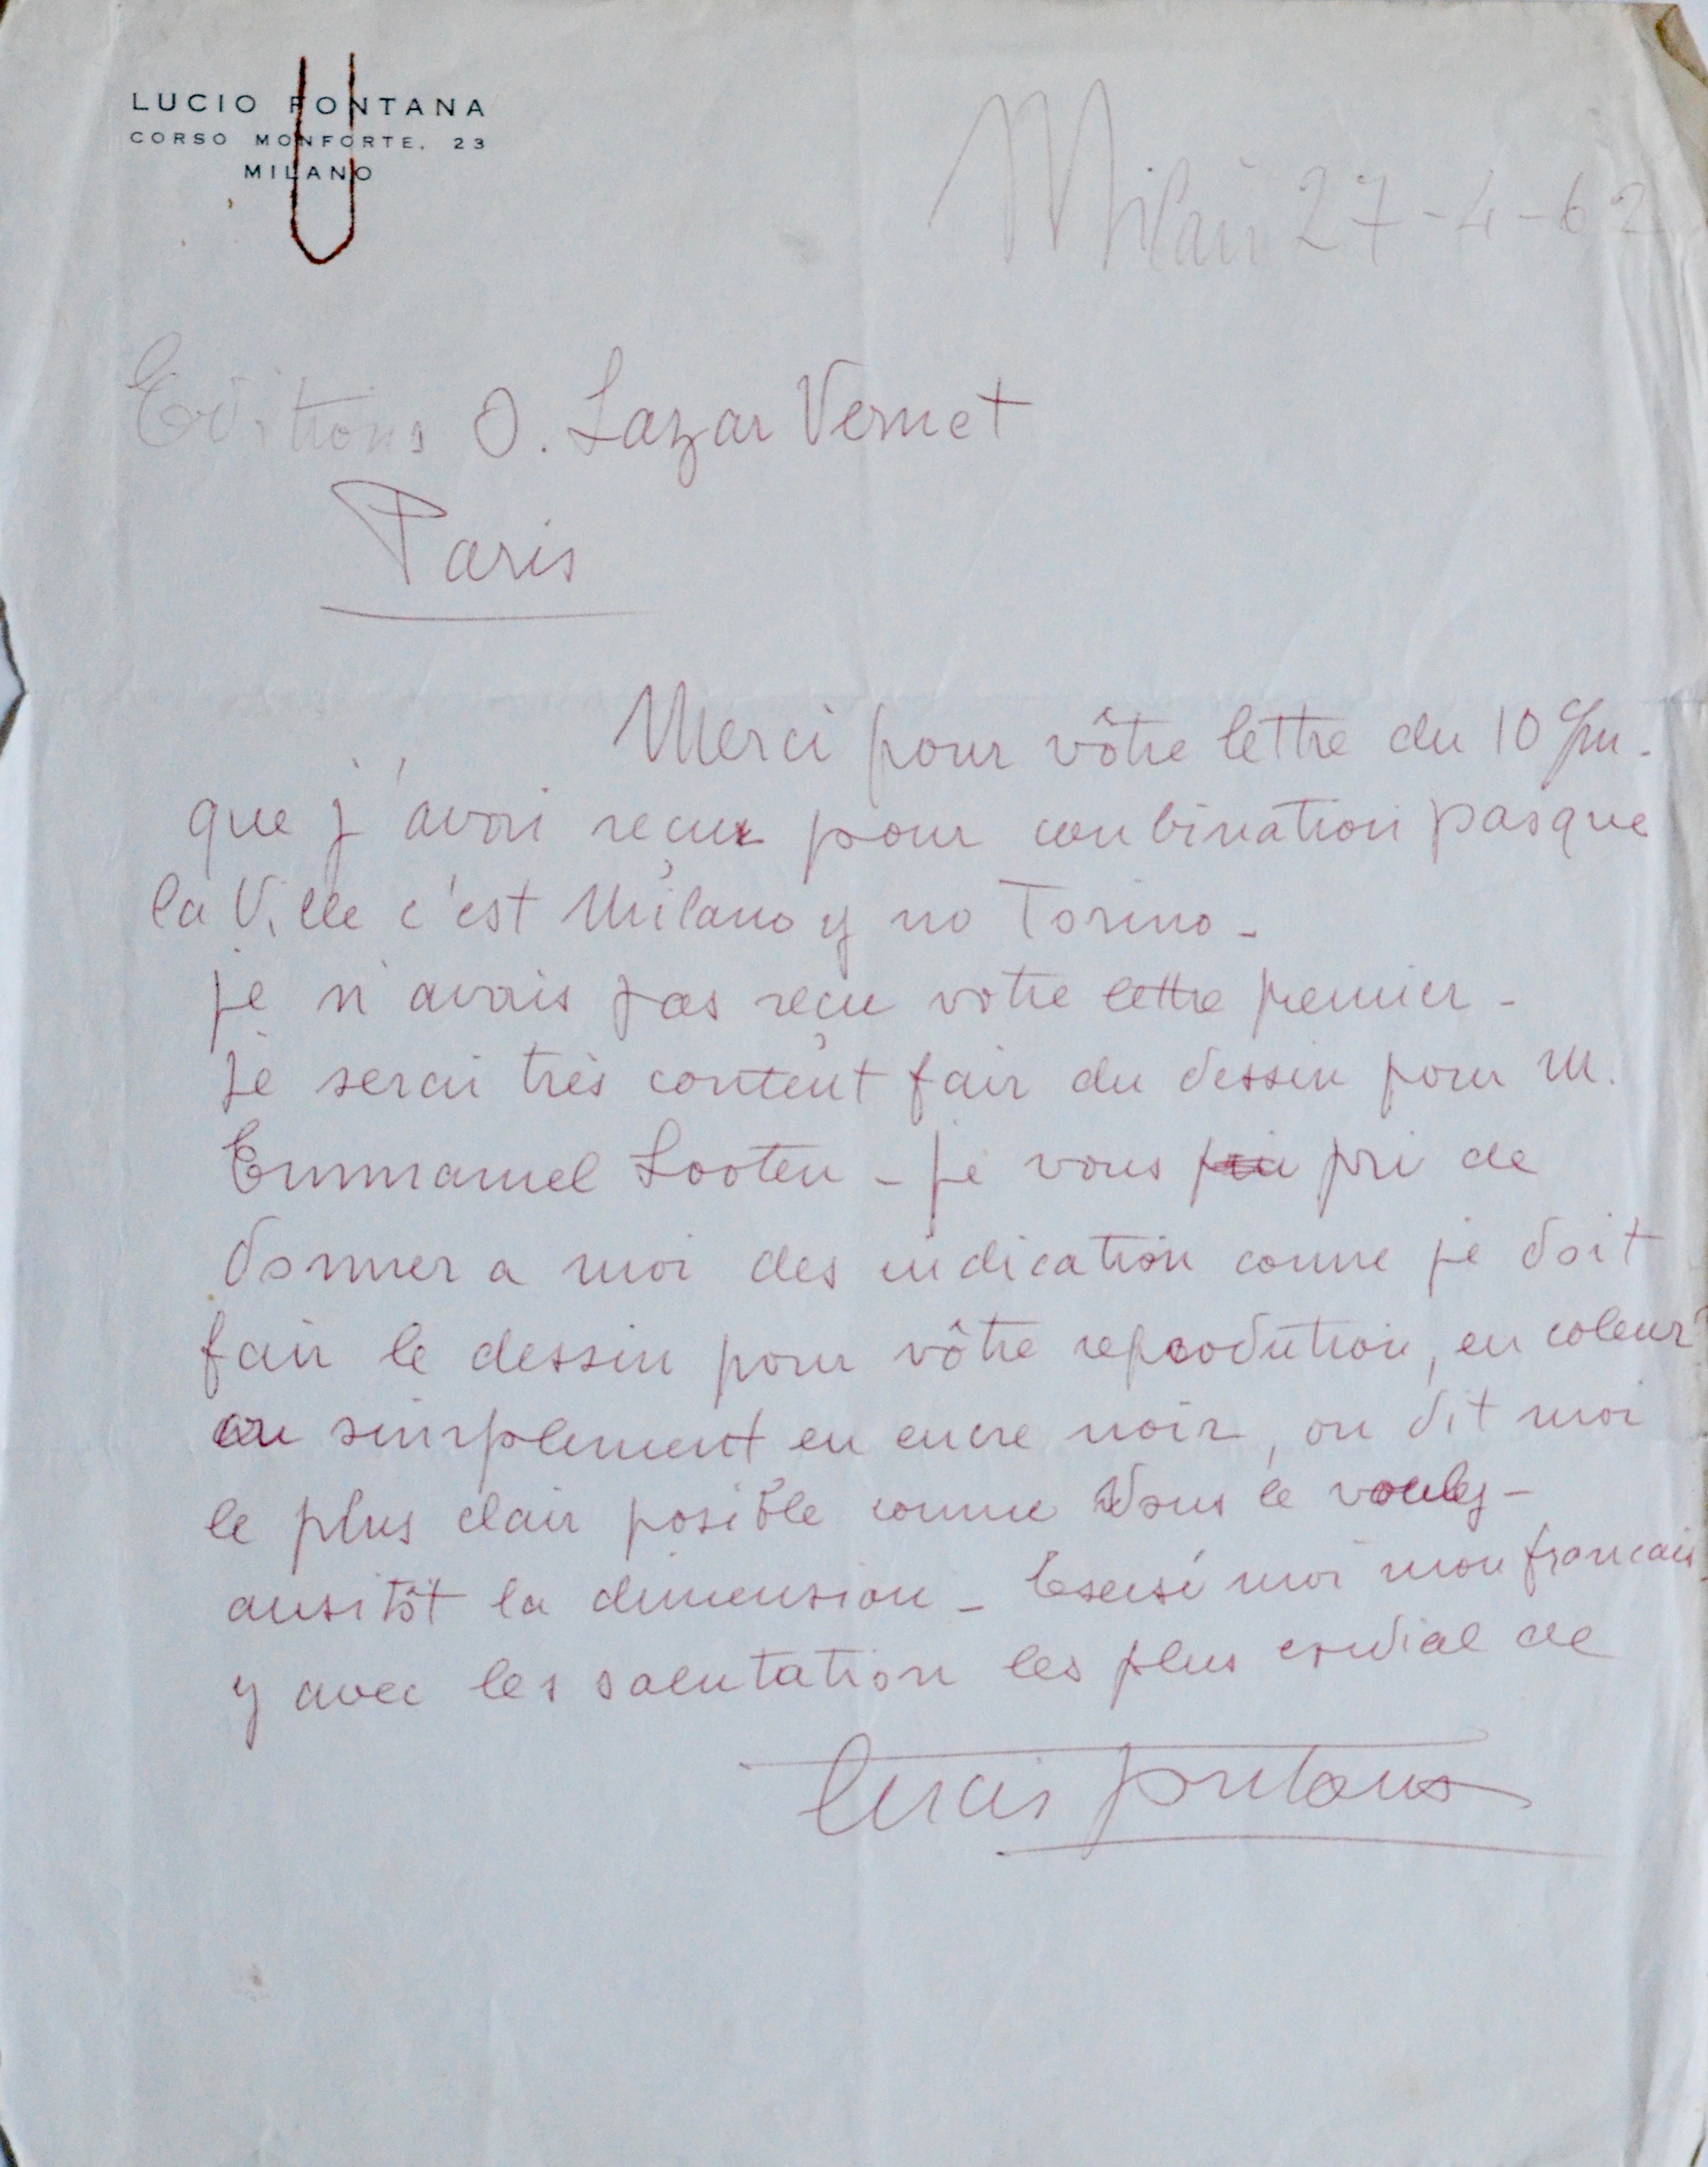 LUCIO FONTANA
CORSO MONFORTE, 23
MILANO
Milan 27-4-62
Editions O. Lazar Vernet
Paris
Merci pour vôtre lettre du 10
que j'avai reçue pour conbination pasque
la Ville c'est Milano y no Torino -
je n'avais pas reçu votre lettre premier -
je serai très content fair du dessin pour M.
Emmanuel Looten - je vous pri de
donner a moi des indication comme je doit
fair le dessin pour vôtre reprodution, en coleur
ou simplement en encre noir, ou dit moi
le plus clair posible comme Vous le voulez -
ausitôt la dimension - Escusé moi mon francais
y avec les salutation les plus cordial de
Lucio Fontana